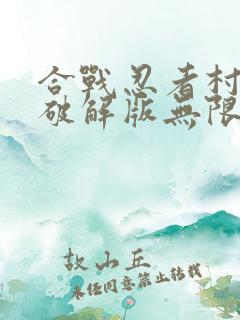 合戰忍者村
破解版無限
故山丘
未任同意禁止转载